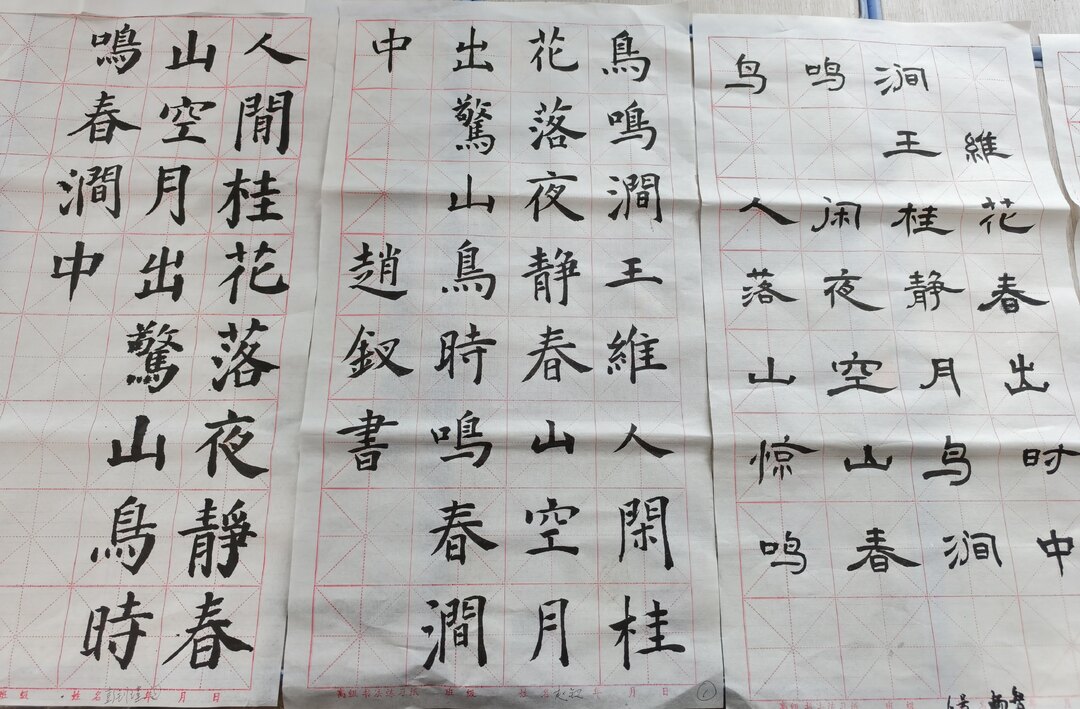 人閒桂花落夜靜春
山空月出驚山鳥時
鳴春澗中
班级 姓名 年 月 日
鳥鳴澗王維人閑桂
花落夜静春山空月
出驚山鳥時鳴春澗
中
趙釵書
高级书法练习纸 班级 姓名 年 月 日 1
鸟鸣涧
王維
人闲桂花
落夜静春
山空月出
惊山鸟时
鸣春涧中
高级书法练习纸 班级